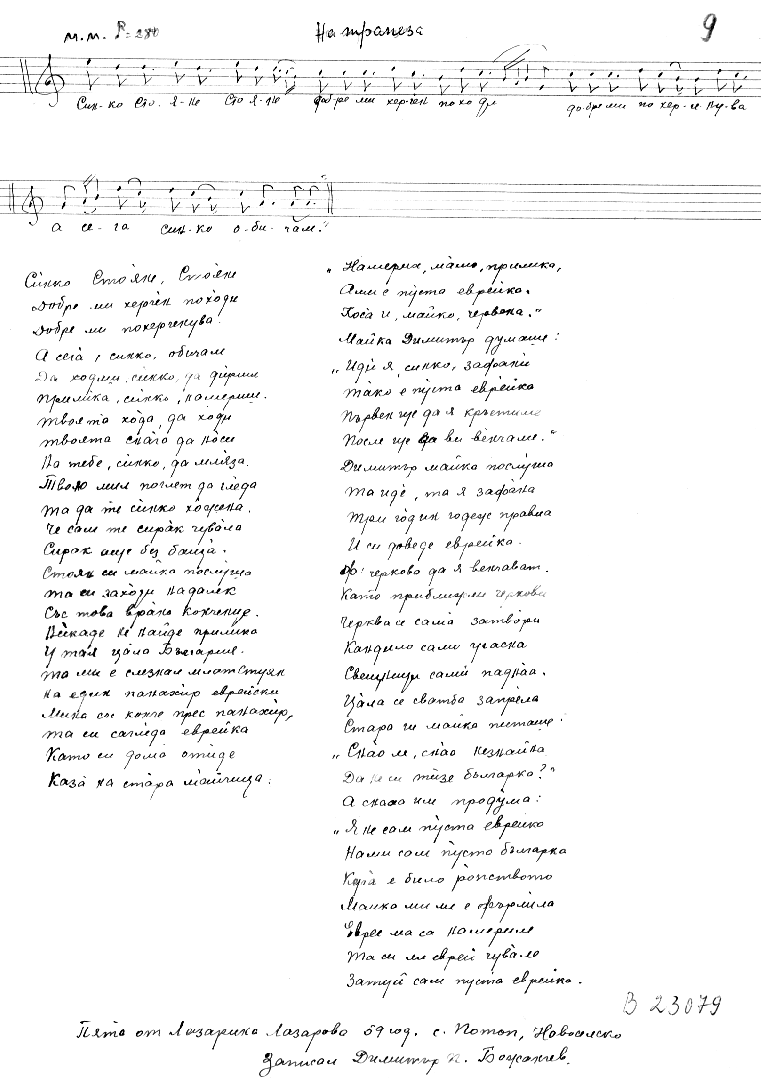 М.М. = 280
На трапеза
9
Син-ко Сто-я-не Сто-я-не доб-ре ми хер-ген по-хо-ди до-бре ми по-хер-ге-ну-ва
а се-га син-ко о-би-чам."
Синко Стояне, Стояне
Добре ми херген походи
Добре ми похергенува.
А сега, синко, обичам
Да ходиш, синко, да дириш
Прилика, синко, намериш.
Твоята хода, да ходи
твоята снага да носи
На тебе, синко, да мляза.
Твойо мил поглет да гледа
та да те синко хожена.
Че сам те сирак чувала
Сирак още без баща.
Стоян си майка послуша
та си заходи надалек
Със това врано кончение.
Нейкаде не найде прилика
У тая цала България.
та ми е слезнал млат Стуян
на един панахир еврейски
Мина със конче прес панахир,
та си сагледа еврейка
Като си дома отиде
Каза на стара майчица:
„Намерих, мамо, прилика,
Ами е пуста еврейка.
Коса и, майко, червена."
Майка Димитър думаше:
„Иди я, синко, зафани
тако е пуста еврейка
Първен ще да я кръстиме
После ще да ви венчаме."
Димитър майка послуша
та иде, та я зафана
Три годин годеж правиа
И си доведе еврейка.
черкова да я венчават.
Като приближи черкова
Черква се сама затвори
Кандило сами угасна
Свещници сами паднаа.
Цала се сватба запрела
Стара ги майка питаше:
„Снао ле, снао незнайна
Да не си тизе българка?"
А снаха им продума:
„Я не сам пуста еврейка
Нами сам пуста българка
Кога е било ропството
Майка ми ме е фърлила
Еврее ма са намерили
Та си ме еврей чувало
Затуй сам пуста еврейка.
В 23079
Пята от Лазарика Лазарова 59 год. с. Потоп, Новоселско
Записал Димитър п. Божанчев.